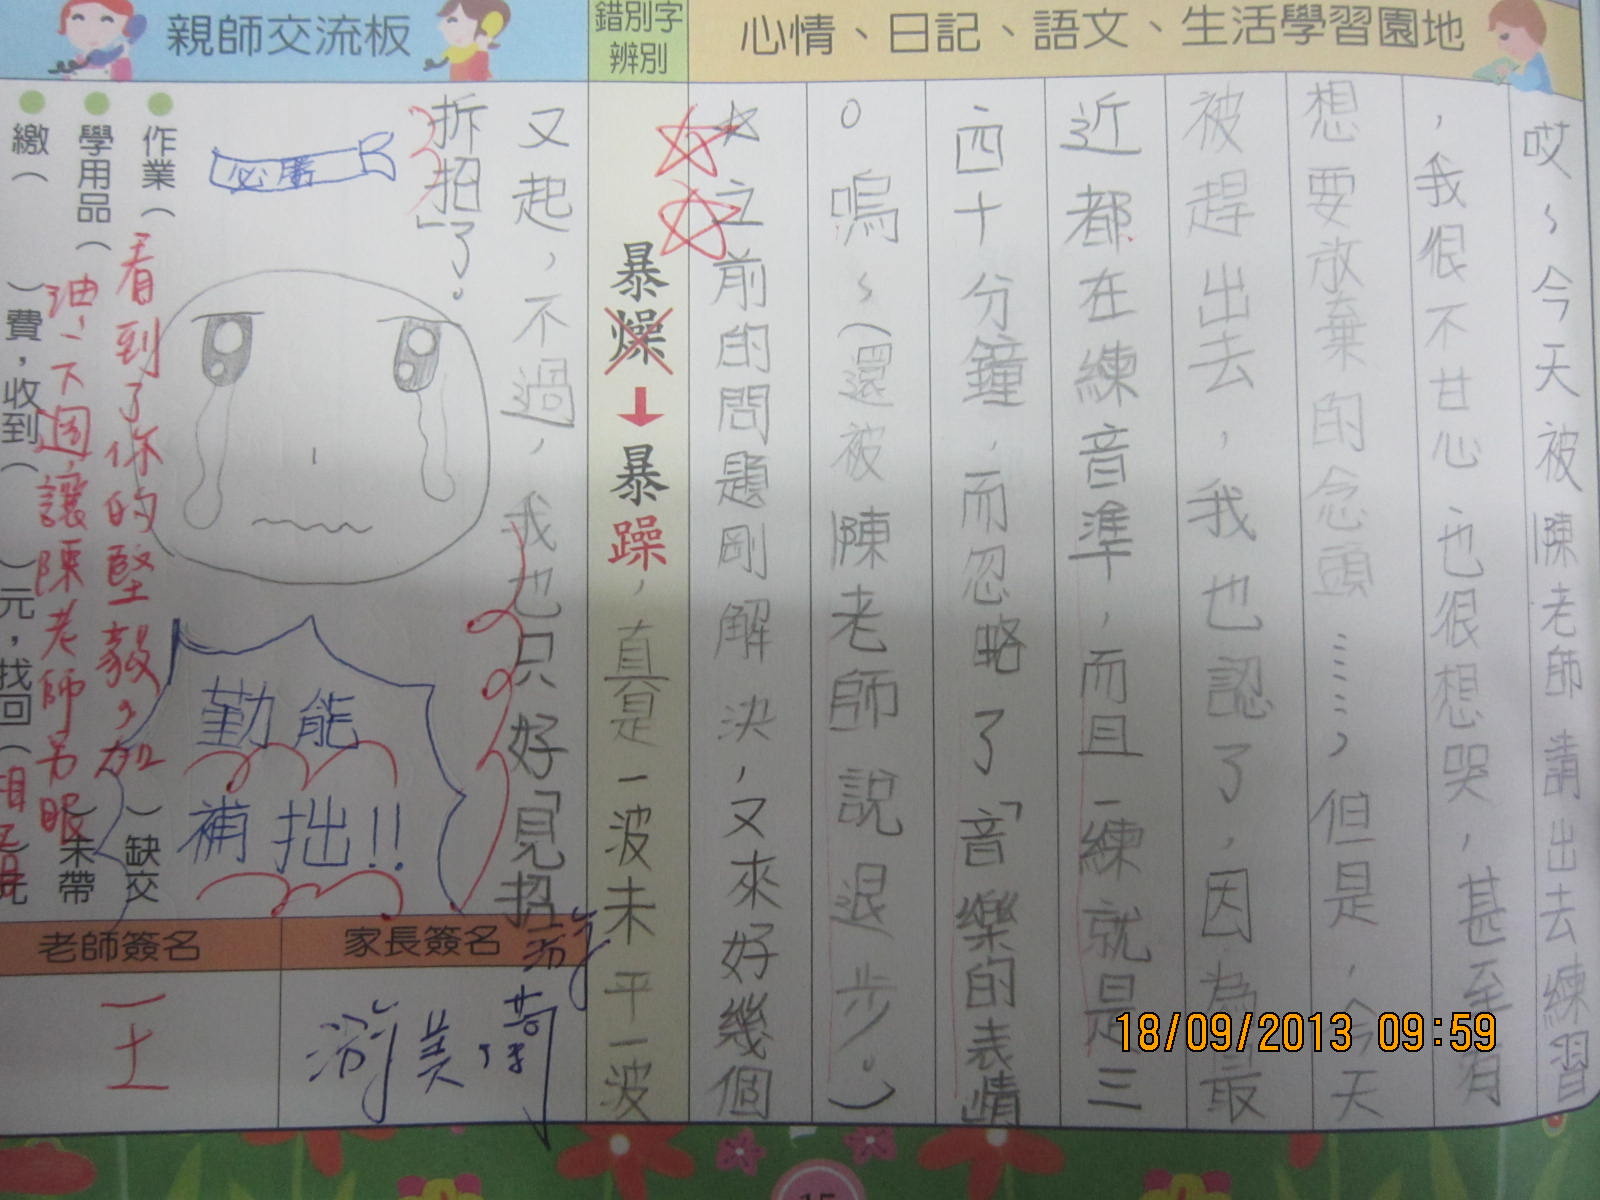 親師交流板
錯別字
辨別
心情、日記、語文、生活學習園地
哎~今天被陳老師請出去練習
，我很不甘心也很想哭，甚至有
想要放棄的念頭……，但是，今天
被趕出去，我也認了，因為最
近都在練音準，而且一練就是三
四十分鐘，而忽略了「音樂的表情」
。嗚~(還被陳老師說退步。)
☆之前的問題剛解決，又來好幾個
暴燥
暴躁
，真是一波未平一波
又起，不過，我也只好「見招
拆招」了。
必勝
勤能
補拙!!
作業（
）缺交
學用品（
）未帶
繳（
）費，收到（
）元，找回（
）元
看到了你的堅毅，加
油~下週讓陳老師另眼
相看
老師簽名
家長簽名
王
游美
18/09/2013 09:59
15